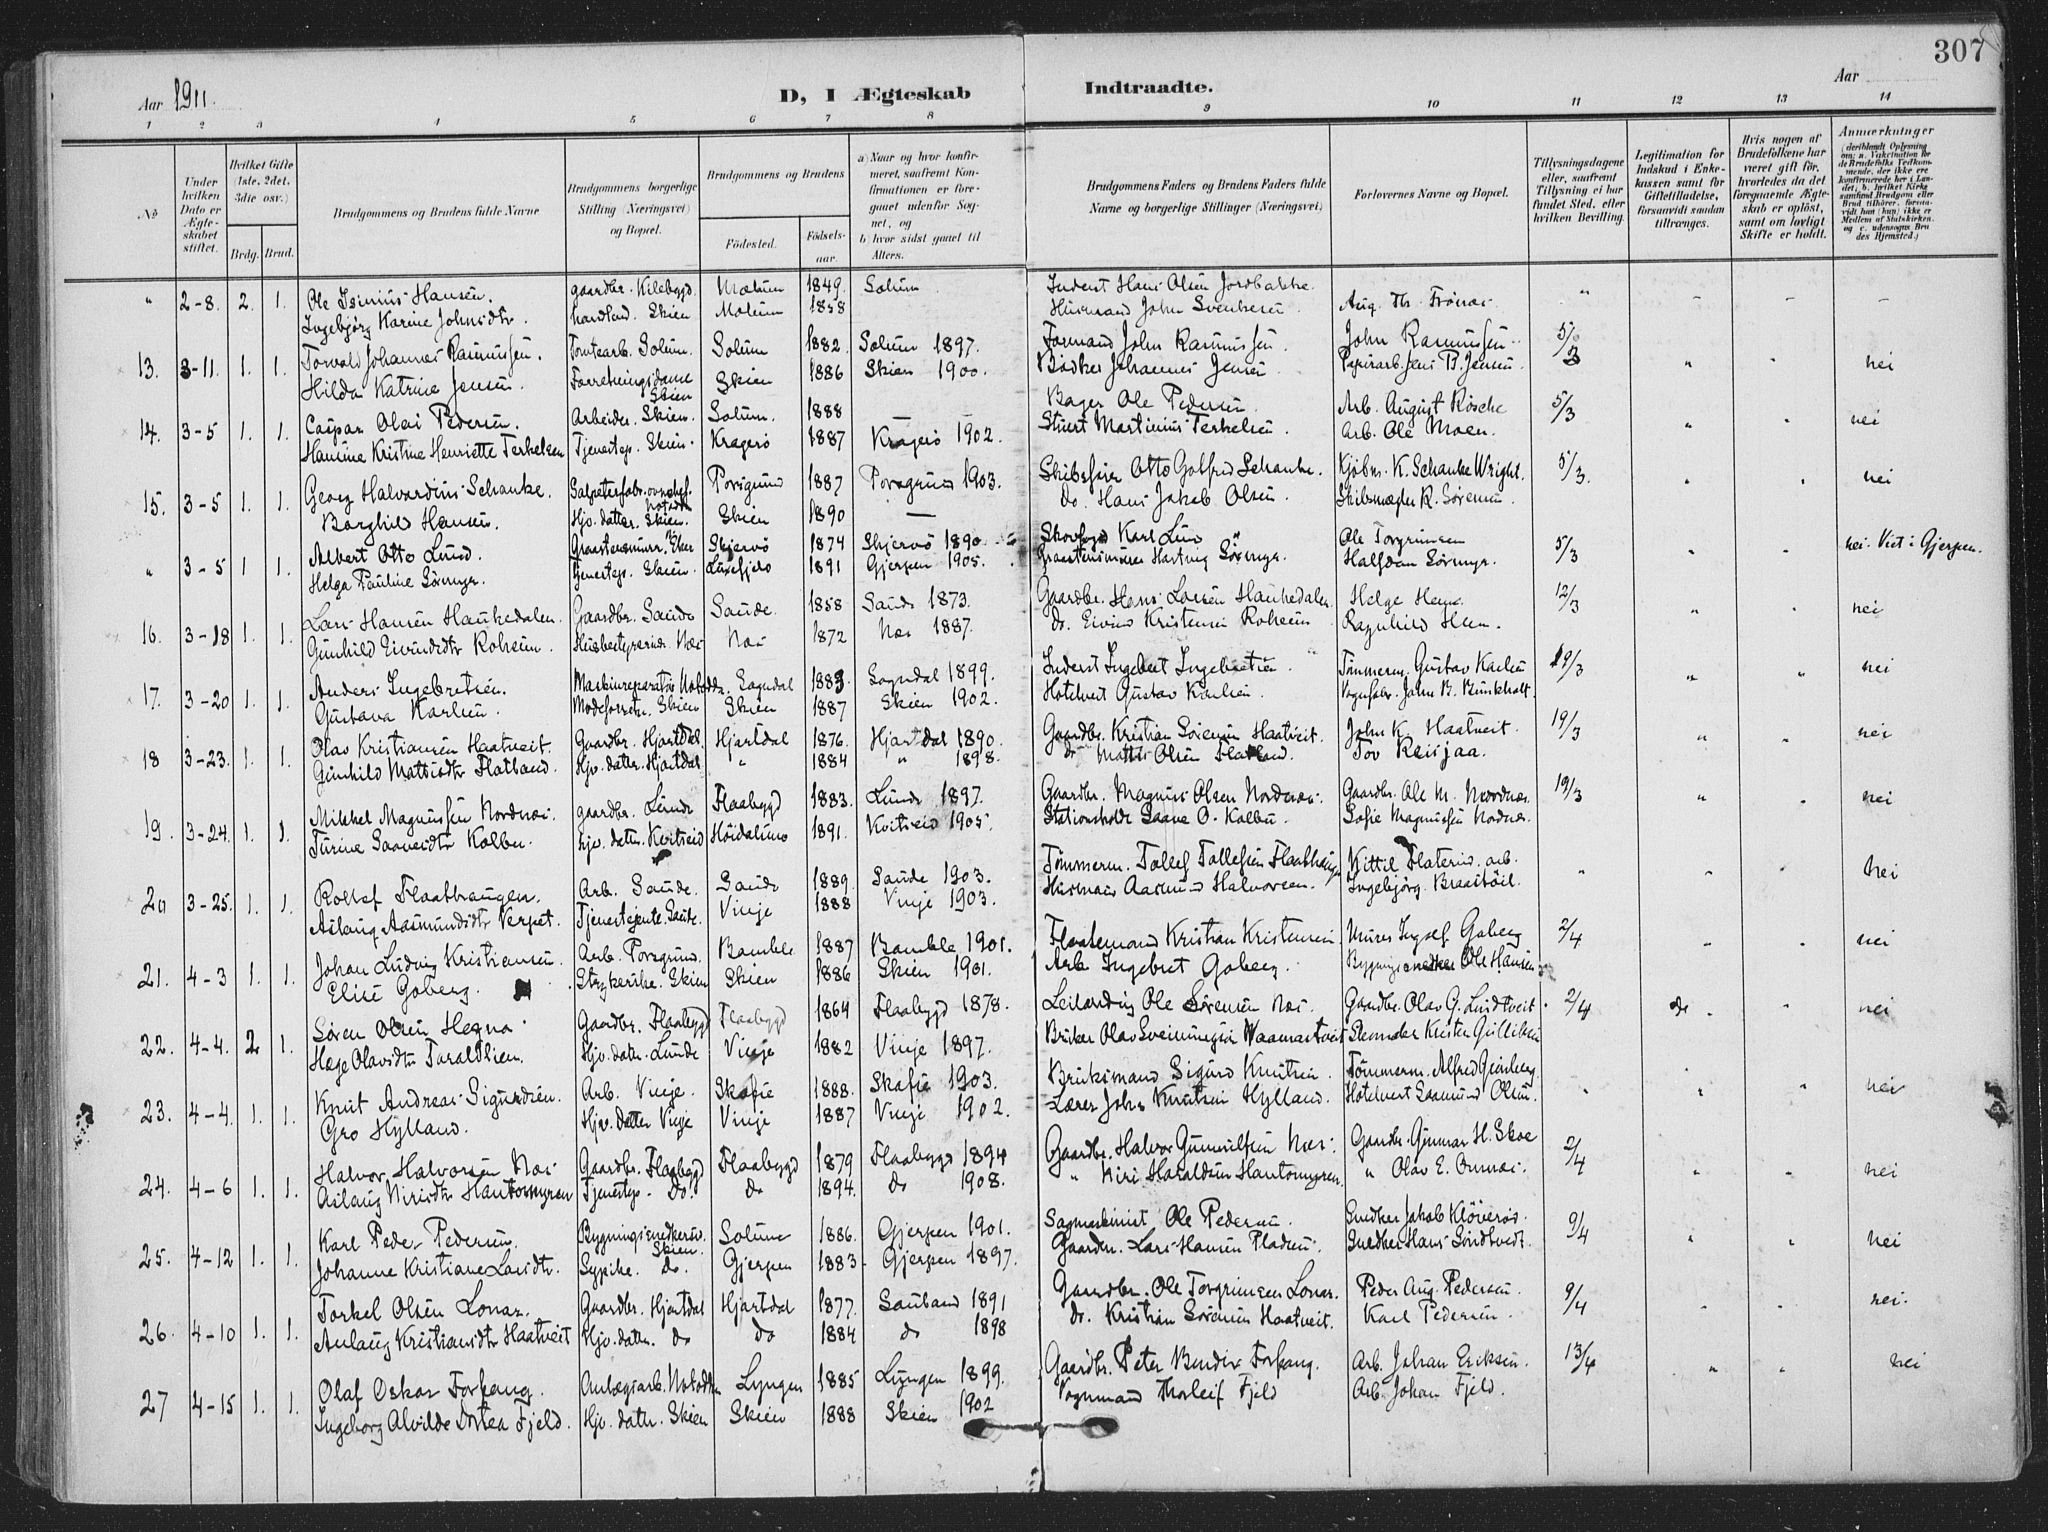 307
Aar 1911.
D, I Ægteskab Indtraadte.
Aar
1 2 3 4 5 6 7 8 9 10 11 12 13 14
No
Under hvilken Dato er Ægteskabet stiftet.
Hvilket Gifte (1ste, 2det, 3die osv.)
Brdg. Brud.
Brudgommens og Brudens fulde Navne
Brudgommens borgerlige Stilling (Næringsvei) og Bopæl.
Brudgommens og Brudens
Fødested. Fødselsaar.
a) Naar og hvor konfirmeret, saafremt Konfirmationen er foregaaet udenfor Sognet, og
b) hvor sidst gaaet til Alters.
Brudgommens Faders og Brudens Faders fulde Navne og borgerlige Stillinger (Næringsvei)
Forlovernes Navne og Bopæl.
Tillysningsdagene eller, saafremt Tillysning ei har fundet Sted, efter hvilken Bevilling.
Legitimation for Indskud i Enkekassen samt for Giftetilladelse, forsaavidt saadan tiltrænges.
Hvis nogen af Brudefolkene har været gift før, hvorledes da det foregaaende Ægteskab er opløst, samt om lovligt Skifte er holdt.
Anmærkninger
" 2-8. 2. 1. Ole Hansen. gaardbr. Kilebygd 1849. Solum Inderst Hans Olsen " - - -
Ingebjørg Karine Johnsdtr. Skien 1858 Husmand John Aug. Th.
13. 3-11. 1. 1. Torvald Johannes Rasmussen. Tomtearb. Solum. Solum 1882. Solum 1897. Formand John Rasmussen. John Rasmussen 5/3 " nei
Hilda Katrine Jensen. Forretningsdame Skien Skien 1886 Skien 1900. Bødker Johannes Jensen Papirarb. Jens B. Jensen
14. 3-5 1. 1. Caspar Olai Pedersen. Arbeider. Skien. Solum. 1888 — — Bager Ole Pedersen Arb. August Rösche 5/3 nei
Hansine Kristine Henriette Terkelsen Tjenestep. Skien. Kragerö 1887 Kragerö 1902. Stuert Martinius Terkelsen. Arb. Ole Moen.
15. 3-5 1. 1. Georg Halvardius Schanke. Notodden Porsgrund 1887 Porsgrund 1903. Skibsfører Otto Golfred Schanke. Kjöbm. K. Schanke Wright. 5/3. nei
Borghild Hansen. Hjv. datter. Skien. Skien 1890 — Do. Hans Jakob Olsen Skibsmægler R. Sörensen.
" 3-5 1 1. Albert Otto Lund. Skjervö 1874 Skjervö 1890 Skovfogd Karl Lund Ole Torgrimsen 5/3 nei. Viet i Gjerpen.
Helga Pauline Sörmyr. Tjenestep. Skien. 1891 Gjerpen 1905. Graastensmurer Hartvig Sörmyr. Halfdan Sörmyr.
16. 3-18 1. 1. Lars Hansen Haukedalen. Gaardbr. Saude Saude. 1858 Saude 1873. Gaardbr. Hans Larsen Haukedalen Helge Hem. 12/3 nei
Gunhild Eivindsdtr Roheim. Husbestyrerinde Næs Næs 1872 Næs 1887. do. Eivind Kristensen Roheim Ragnhild Hem.
17. 3-20 1. 1. Anders Ingebretsen. Maskinreparatör Notodden. Sogndal 1883 Sogndal 1899. Inderst Ingebret Ingebretsen Tömmerm. Gustav Karlsen 19/3 " " nei
Gustava Karlsen. Skien Skien 1887 Skien 1902. Hotelvert Gustav Karlsen.
18 3-23. 1. 1. Olav Kristiansen Haatveit. Gaardbr. Hjartdal. Hjartdal 1876. Hjartdal 1890. Gaardbr. Kristian Sörensen Haatveit. John K. Haatveit. 19/3 nei
Gunhild Mattisdtr Flatland. Hjv. datter. Hjartdal " 1884 " 1898. do Mattis Olsen Flatland. Tov Reisjaa.
19. 3-24. 1. 1. Mikkel Magnussen Nordnæs. gaardbr. Lunde Flaabygd 1883. Lunde 1897. Gaardbr. Magnus Olsen Nordnæs. Gaardbr. Ole M. Nordnæs. 19/3 nei
Turine Saavesdtr Kolbu. hjv. datter. Kvitseid Höidalsmo 1891. Kvitseid 1905. Stationsholder Saave O. Kolbu. Sofie Magnussen Nordnæs.
20 3-25. 1. 1. Rollef Flaathaugen. Arb. Saude. Saude 1889. Saude 1903. Tömmerm. Tollef Tollefsen Flaathaugen Kittil Flaterud. arb. " nei
Aslaug Aasmundsdtr Verpet. Tjenestejente. Saude. Vinje 1888 Vinje 1903. Husmand Aasmund Halvorsen. Ingebjörg Braastöil.
21. 4-3 1. 1. Johan Ludvig Kristiansen. Arb. Porsgrund. Bamble 1887 Bamble 1901. Flaatemand Kristian Kristensen Murer Goberg 2/4 nei
Elise Goberg. Strykerske. Skien Skien 1886 Skien 1901. Arb. Ingebret Goberg. Bygningssnedker Ole Hansen
22. 4-4. 2 1. Sören Olsen Hegna. Gaardbr. Flaabygd Flaabygd 1864 Flaabygd 1878. Leilænding Ole Sörensen Næs. Gaardbr. Olav G. Lindtveit. 2/4 do nei
Hæge Olavsdtr Taraldlien. Hjv. datter. Lunde Vinje 1882 Vinje 1897. Bruker Olav Sveinungsen
23. 4-4. 1. 1. Knut Andreas Sigurdsen. Arb. Vinje. Skafsaa 1888. 1903. Bruksmand Sigurd Knutsen. Tömmerm. Alfred " " nei
Gro Hylland. Hjv. datter Vinje Vinje 1887 Vinje 1902. Lærer John Knutsen Hylland. Hotelvert Olsen.
24. 4-6 1. 1. Halvor Halvorsen Næs. Gaardbr. Flaabygd Flaabygd 1879 Flaabygd 1894 Gaardbr. Halvor Gunnulfsen Næs. Gaardbr. Gunnar H. Skoe 2/4 nei
Aslaug Nirisdtr Hantosmyren Tjenestep. Do. do 1894. do 1908. " Niri Haraldsen Hantosmyren. " Olav E. Omnæs.
25. 4-12 1. 1. Karl Peder Pedersen. Bygningssnedkersv. Skien. Solum 1886. Gjerpen 1901. Sagmaskinist Ole Pedersen. Snedker Jakob Klöverød. 9/4 nei
Johanne Kristiane Larsdtr. Sypike. do. Gjerpen 1883. Gjerpen 1897. Gaardbr. Lars Hansen Pladsen. Snedker Hans Sondtvedt.
26. 4-10 1. 1. Torkel Olsen Lonar. Gaardbr. Hjartdal Hjartdal 1877. Sauland 1891 Gaardbr. Ole Torgrimsen Lonar. Peder Aug. Pedersen. 9/4 nei.
Aslaug Kristiansdtr Haatveit Hjv. datter. do do 1884 do 1898 do. Kristian Sörensen Haatveit. Karl Pedersen.
27 4-15 1. 1. Olaf Oskar Forfang. Anlægsarb. Notodden Lyngen 1885 Lyngen 1899. Gaardbr. Peter Bendix Forfang. Arb. Johan Eriksen. 13/4 " " nei
Ingeborg Alvilde Dortea Fjeld. Hjv. datter. Skien Skien 1888 Skien 1902 Vognmand Thorleif Fjeld Arb. Johan Fjeld.